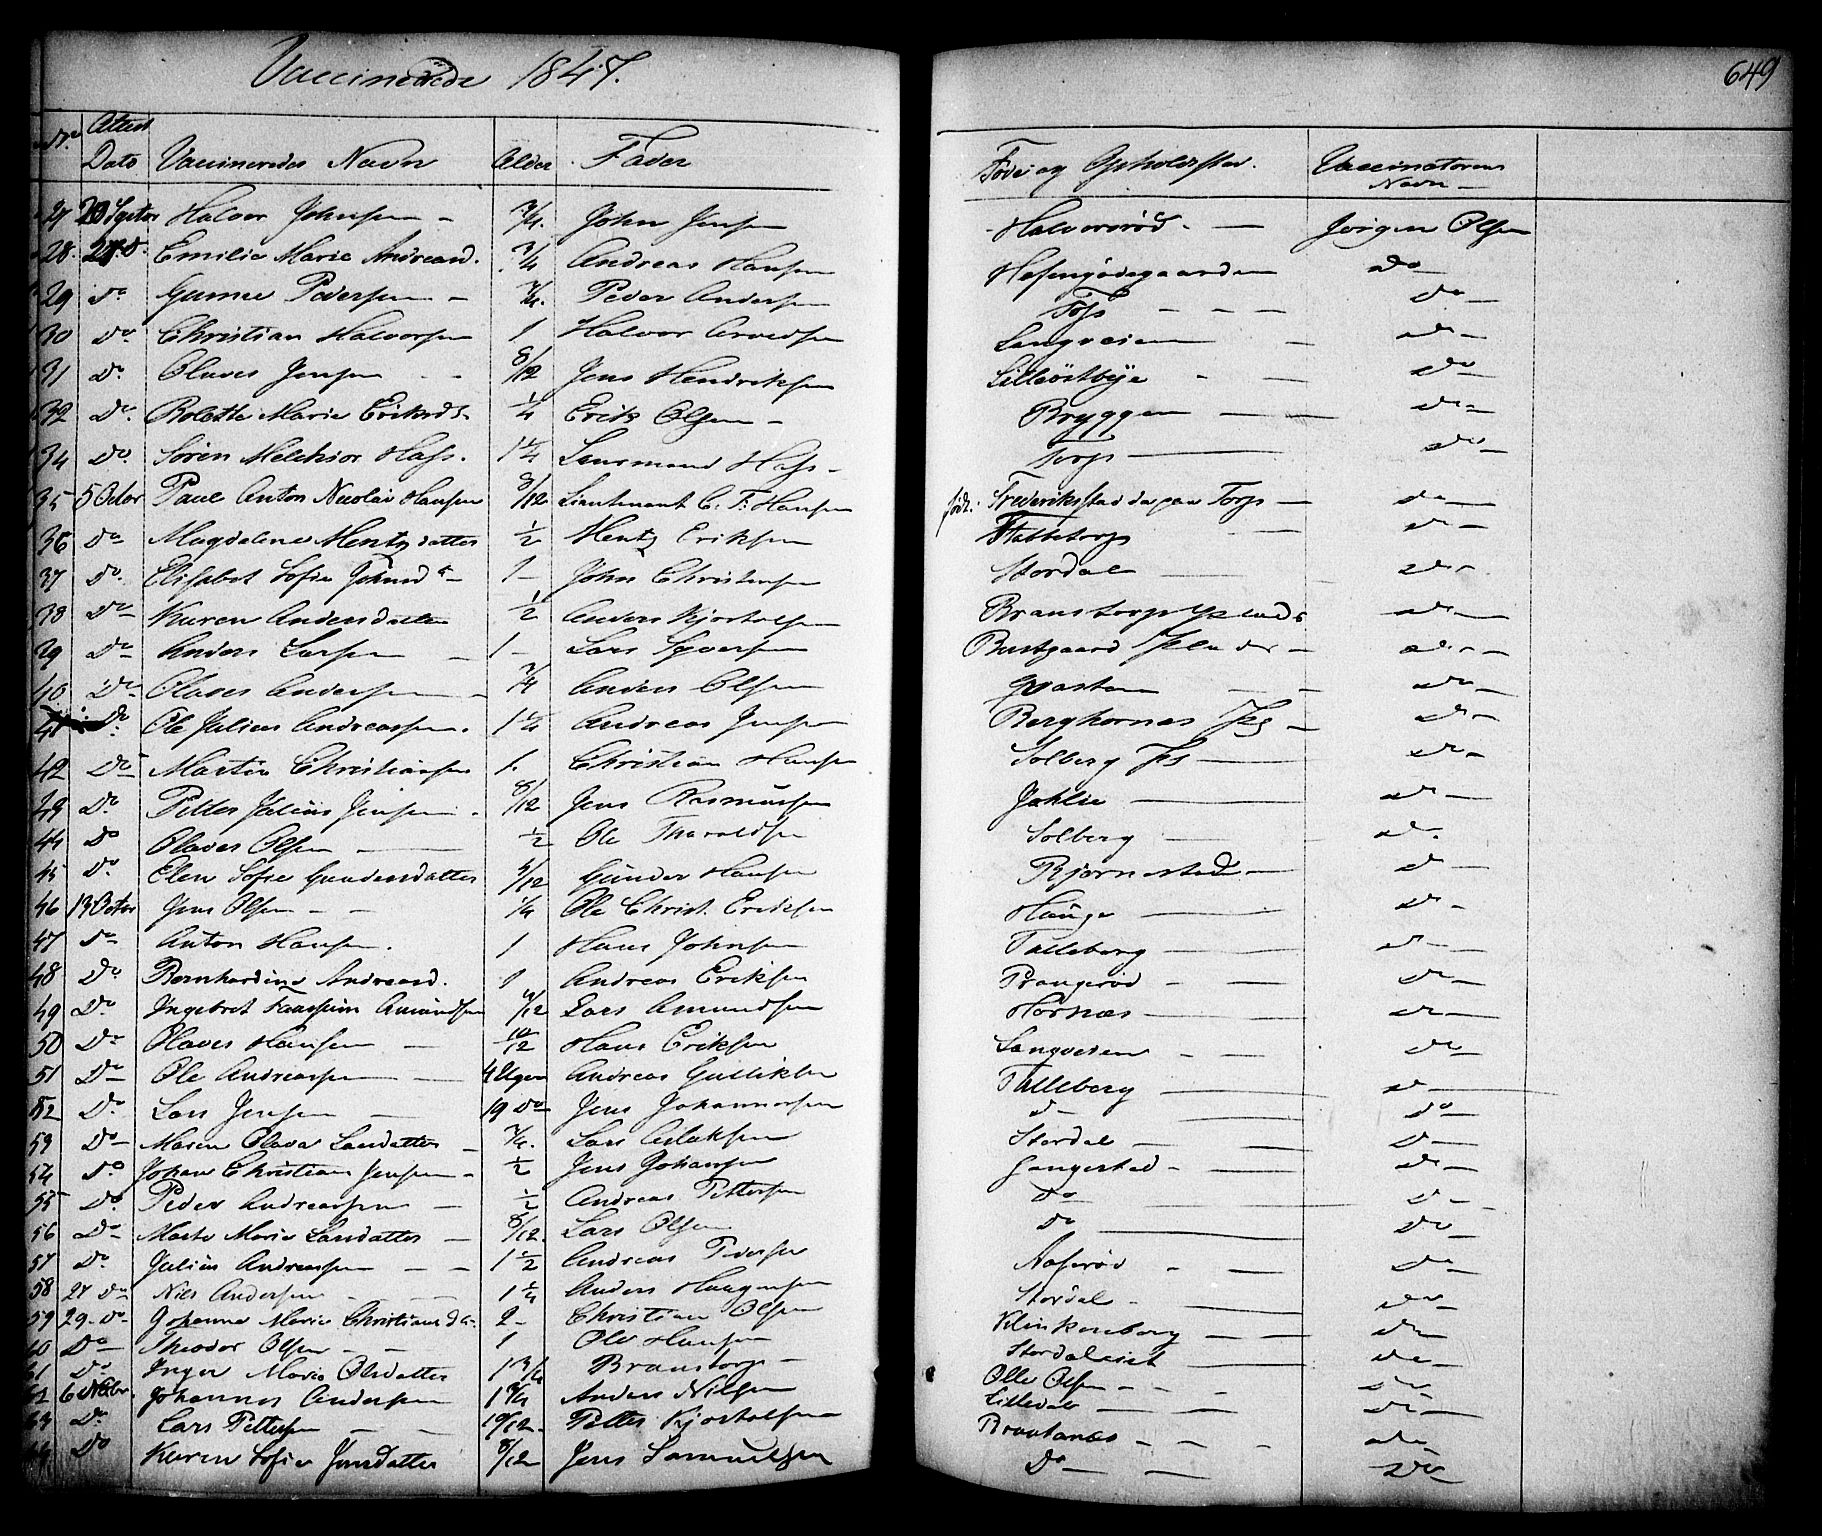 Vaccinerede 1847.
649
No. Attest Dato Vaccineredes Navn Alder Fader Føde og Opholdssted. Vaccinatorens Navn
27 20 Septbr Halvor Johnsen 3/4. John Jensen Halvorsrød. Jørgen Olsen
28. 27. D. Emilie Marie Andreasd. 3/4 Andreas Hansen Hafsengødegaarden Do
29 Do Gunne Pedersen 3/4. Peder Andersen Torp Do
30 Do Christian Halvorsen 1 Halvor Arvedsen Langveien Do
31 Do Olaves Jensen 8/12 Jens Hendriksen Lilleøstbye Do
32 Do Bolette Marie Eriksd. 1/4 Erik Olsen Bryggen Do
34 Do. Søren Melchior Hass. 1 1/4 Lensmand Hass Torp Do
35 5 Octbr Paul Anton Nicolai Hansen 8/12 Lieutenant C. F. Hansen født: Frederiksstad da paa Torp Do
36 Do Magdalene Mentzdatter 1/2 Mentz Eriksen Hattetorp Do
37 Do. Elisabet Sofie Johnsd 1 John Christensen Stordal Do
38 Do Karen Andersdatter 1/2 Anders Kjostolsen Branstorp Plads Do
39 Do Anders Larsen 1 Lars Syversen Bustgaard Pladser Do
40 Do Olaves Andersen 3/4 Anders Olsen Gvasten Do
41 Do. Ole Julius Andreassen. 1 1/4 Andreas Jensen Berghornes Do
42 Do Martin Christiansen 1. Christian Hansen Solberg Do
43 Do. Petter Julius Jensen. 8/12 Jens Rasmussen Jahlie Do
44 Do Olaves Olsen 1/2 Ole Tharaldsen Solberg Do.
45 Do. Elen Sofie Gundersdatter 5/12 Gunder Hansen Bjørnestad Do
46 13 Octbr Jens Olsen 1/4 Ole Christ. Eriksen Hauge Do
47 Do Anton Hansen. 1 Hans Johnsen Talleborg Do
48 Do Bernhardine Andreasd. 1 Andreas Eriksen Prangerød Do
49 Do. Ingebret Amundsen /12 Lars Amundsen Hornæs Do
50 Do Olaves Hansen 10/12 Hans Eriksen Langveien Do
51 Do Ole Andreassen 4 Uger Andreas Gulliksen Talleberg Do
52 Do. Lars Jensen 19 Do Jens Johannessen Do Do
53 Do Maren Olava Larsdatter 3/4. Lars Aslaksen Stordal Do
54 Do Johan Christian Jensen 1/2 Jens Johansen Gangestad Do
55 Do. Peder Andreassen 1/2 Andreas Pettersen Do Do
56 Do Marte Marie Larsdatter 8/12. Lars Olsen Do Do
57 Do. Julius Andreassen 1 1/2 Andreas Pedersen Navserød Do
58 27 Do Nils Andersen 1 1/4 Anders Haagensen Stordal Do
59 29. Do. Johanne Marie Christiansda. 2 Christian Olsen Klinkenberg Do
60 Do Theodor Olsen 1 Ole Hansen Stordaleiet Do
61 Do Inger Marie Olsdatter 1 3/4 Branstorp Olle Olsen Do
62 6 Novbr. Johannes Andersen 1 3/4 Anders Nilsen Lilledal Do
63 Do. Lars Pettersen 10/12. Petter Kjostolsen Braatenæs Do
64 Do Karen Sofie Jensdatter 8/12 Jens Samuelsen Do Do